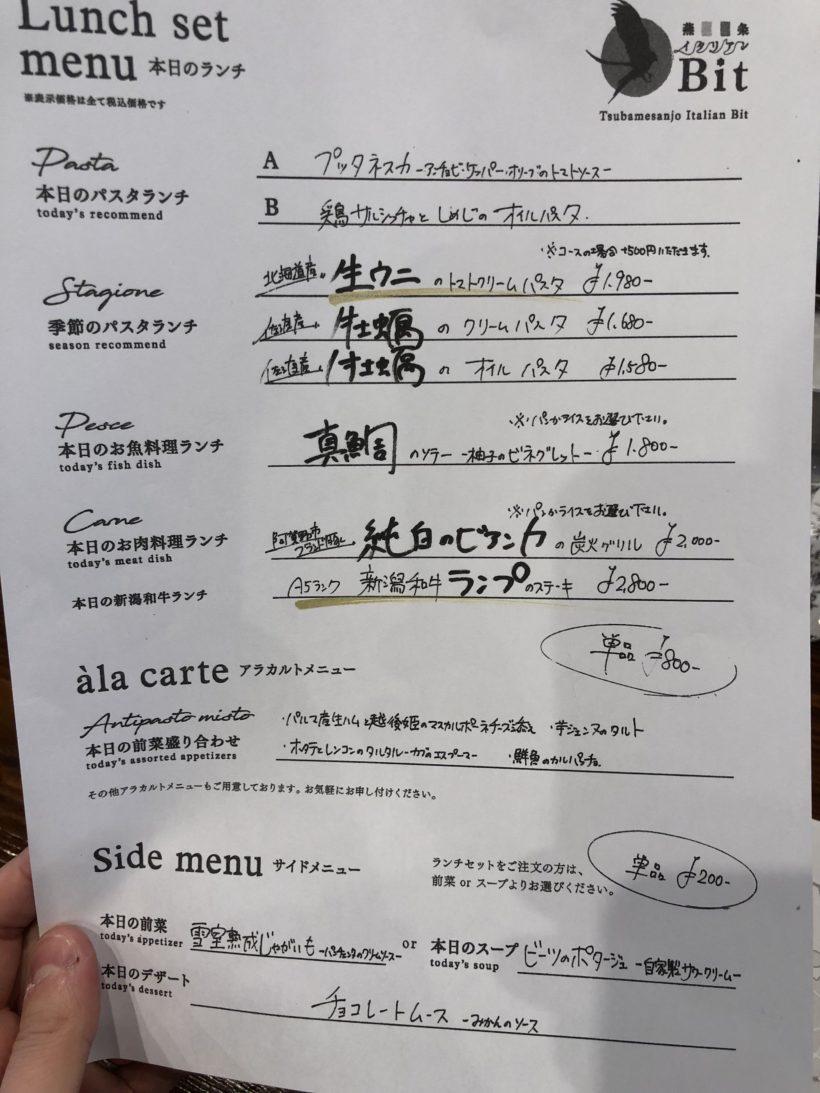 Lunch set
menu 本日のランチ
※表示価格は全て税込価格です
燕三条
イタリアン
Bit
Tsubamesanjo Italian Bit
Pasta
本日のパスタランチ
today's recommend
A プッタネスカ -アンチョビ・ケッパー・オリーブのトマトソース-
B 鶏サルシッチャとしめじのオイルパスタ.
Stagione
季節のパスタランチ
season recommend
※コースの場合+500円いただきます。
北海道産 生ウニのトマトクリームパスタ ¥1.980-
佐渡産 牡蠣のクリームパスタ ¥1.680-
佐渡産 牡蠣のオイルパスタ ¥1.580-
Pesce
本日のお魚料理ランチ
today's fish dish
※パンかライスをお選び下さい。
真鯛のソテー -柚子のビネグレット- ¥1.800-
Carne
本日のお肉料理ランチ
today's meat dish
※パンかライスをお選び下さい。
阿賀野市ブランド豚 純白のビアンカの炭火グリル ¥2,000-
本日の新潟和牛ランチ
A5ランク 新潟和牛ランプのステーキ ¥2,800-
単品 ¥800-
àla carte アラカルトメニュー
Antipasto misto
本日の前菜盛り合わせ
today's assorted appetizers
・パルマ産生ハムと越後姫のマスカルポーネチーズ添え ・芋ジェンヌのタルト
・ホタテとレンコンのタルタル-カブのエスプーマ- ・鮮魚のカルパッチョ
その他アラカルトメニューもご用意しております。お気軽にお申し付けください。
side menu サイドメニュー
ランチセットをご注文の方は、
前菜 or スープよりお選びください。
単品 ¥200-
本日の前菜
today's appetizer
雪室熟成じゃがいも -パンチェッタのクリームソース-
or
本日のスープ
today's soup
ビーツのポタージュ -自家製サワークリーム-
本日のデザート
today's dessert
チョコレートムース -みかんのソース